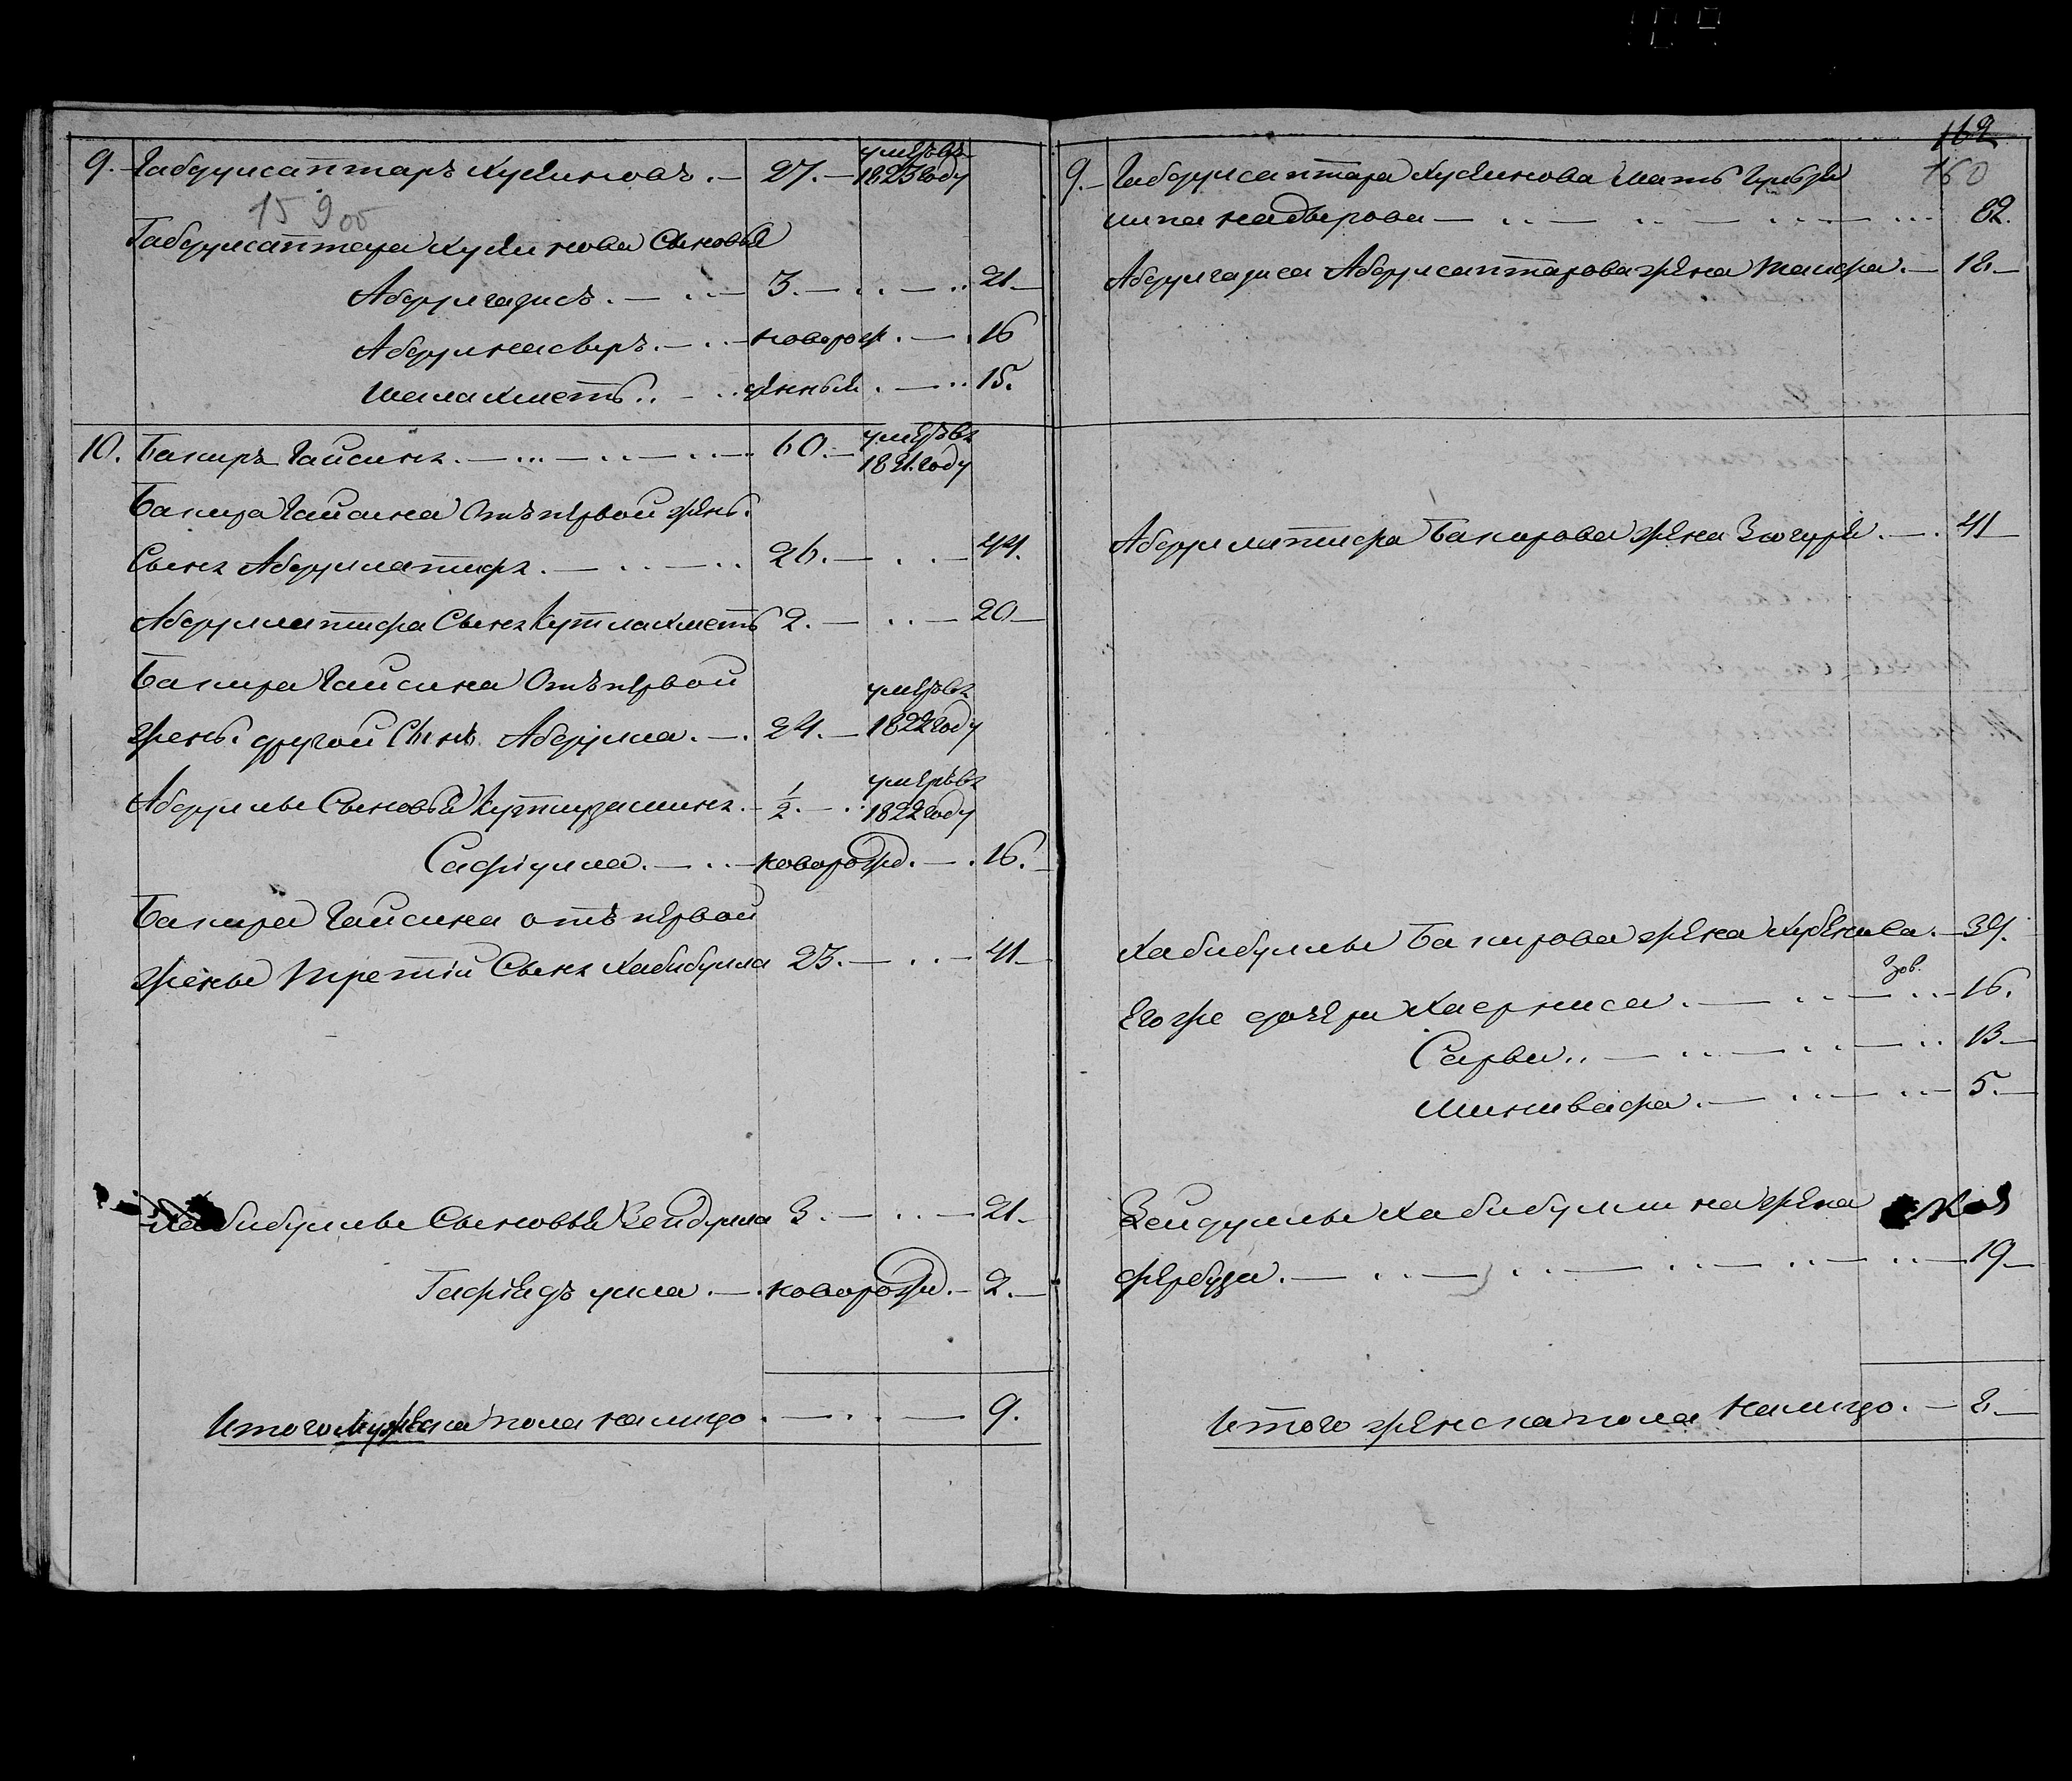 9. Габдулсаттаръ Хусеиновъ. — 27. — умеръ въ
1823 году
15 9об
Габдулсаттара Хусеинова Сыновья
Абдулгазисъ. — 3. — 21 —
Абдулнасыръ. — новорож. — 16
Шагиахметъ. — денный. — 15.
10. Бакиръ Гайсинъ. — 60. — умеръ въ
1821 году
Бакира Гайсина Отъ первой жены.
Сынъ Абдуллатифъ. — 26. — 44.
Абдуллатифа Сынъ Кутлахметъ 2. — 20 —
Бакира Гайсина Отъ первой
жены другой Сынъ Абдулла. — 24. — умеръ въ
1822 году
Абдуллы Сыновья Кутлузаминъ. — 1/2. — умеръ въ
1822 году
Сафіулла. — новорожд. — 16. —
Бакира Гайсина отъ первой
жены третій Сынъ Хабибулла 23. — 41 —
Хабибуллы Сыновья Зейдулла 3. — 21 —
Гафіядъ улла. — новорожд. — 2. —
Итого Мужеска пола налицо. — 9.
162
160
9. — Габдулсаттара Хусеинова мать
Надырова — 82.
Абдулгазиса Абдулсаттарова жена — 18. —
Абдуллатифа Бакирова жена Зюгуря. — 41 —
Хабибуллы Бакирова жена — 39.
Его же дочери Хаерниса. — 16.
Сарви. — 13 —
Минивафа. — 5. —
Зейдуллы Хабибуллина жена
— 19 —
Итого женска пола налицо. — 8. —